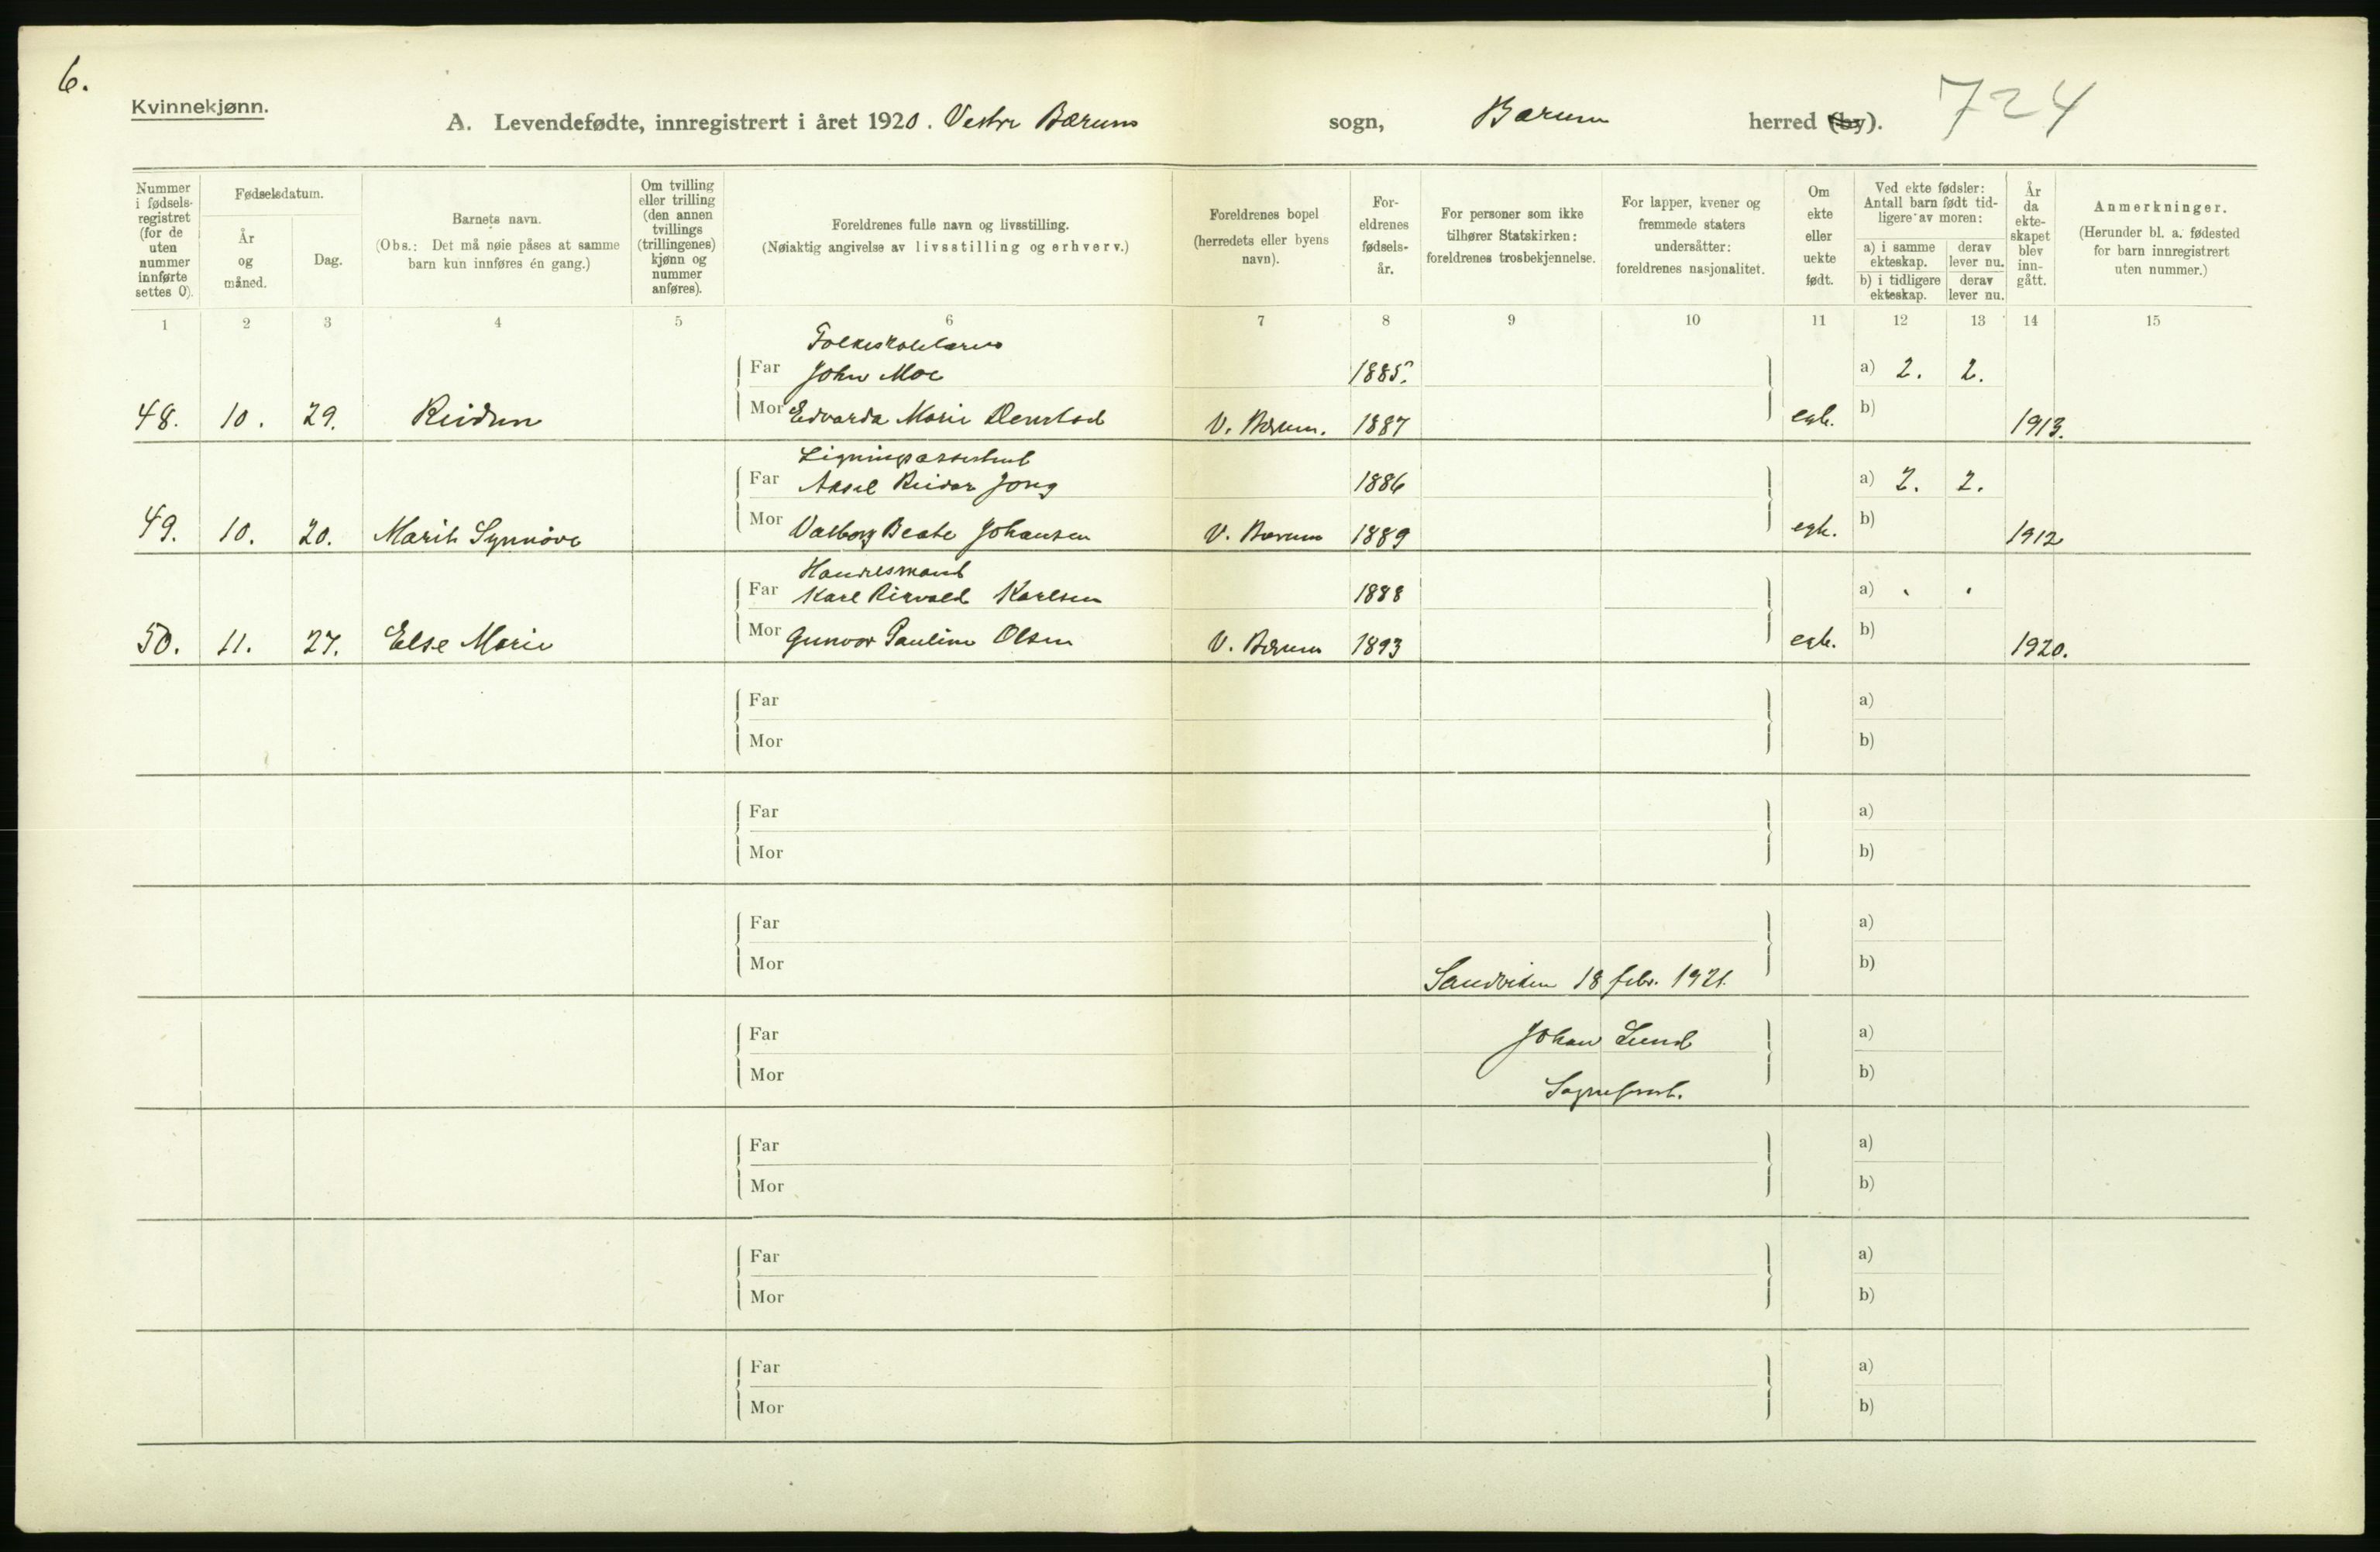 6.
Kvinnekjønn.
A. Levendefødte, innregistrert i året 1920. Vestre Bærum sogn, Bærum herred (by).
724
Nummer i fødsels-registret (for de uten nummer innførte settes 0).
Fødselsdatum.
År og måned.
Dag.
Barnets navn.
(Obs.: Det må nøie påses at samme barn kun innføres én gang.)
Om tvilling eller trilling (den annen tvillings (trillingenes) kjønn og nummer anføres).
Foreldrenes fulle navn og livsstilling.
(Nøiaktig angivelse av livsstilling og erhverv.)
Foreldrenes bopel (herredets eller byens navn).
For-eldrenes fødsels-år.
For personer som ikke tilhører Statskirken: foreldrenes trosbekjennelse.
For lapper, kvener og fremmede staters undersåtter: foreldrenes nasjonalitet.
Om ekte eller uekte født.
Ved ekte fødsler: Antall barn født tid-ligere av moren:
a) i samme ekteskap.
derav lever nu.
b) i tidligere ekteskap.
derav lever nu.
År da ekte-skapet blev inn-gått.
Anmerkninger.
(Herunder bl. a. fødested for barn innregistrert uten nummer.)
1 2 3 4 5 6 7 8 9 10 11 12 13 14 15
Far John Moe 1885. a) 2. 2.
48. 10. 29. Reidun Mor Edvarda Marie V. Bærum. 1887 egte. b) 1913.
Ligningsassistent
Far Aksel Reidar Jong 1886 a) 2. 2.
49. 10. 20. Marit Synnöve Mor Valborg Beate Johansen V. Bærum 1889 egte. b) 1912
Handelsmand
Far Karl Karlsen 1888 a)
50. 11. 27. Else Marie Mor Gunvor Pauline Olsen V. Bærum 1893 egte. b) 1920.
Far a)
Mor b)
Far a)
Mor b)
Far a)
Mor Sandviken 18 febr. 1921. b)
Far Johan Lund a)
Mor Sogneprest. b)
Far a)
Mor b)
Far a)
Mor b)
Far a)
Mor b)